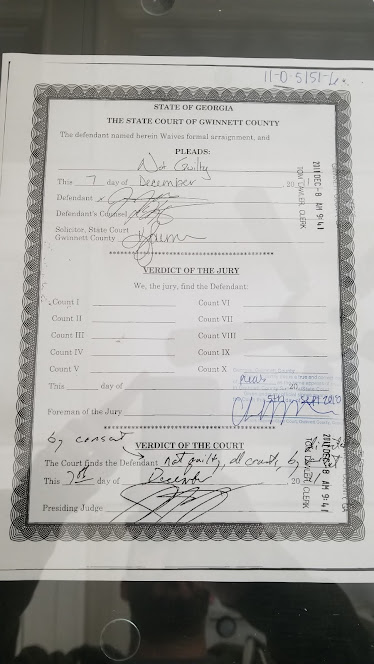 STATE OF GEORGIA
THE STATE COURT OF GWINNETT COUNTY
The defendant named herein Waives formal arraignment, and
PLEADS:
Not Guilty
This 7 day of December 20
Defendant x
Defendant's Counsel
Solicitor, State Court
Gwinnett County
2011 DEC -8 AM 9:41
TOM LAWLER, CLERK
VERDICT OF THE JURY
We, the jury, find the Defendant:
Count I Count VI
Count II Count VII
Count III Count VIII
Count IV Count IX
Count V Count X
This day of 20
Foreman of the Jury
by consent
VERDICT OF THE COURT
The Court finds the Defendant not guilty, all counts, by
This day of December 20
Presiding Judge
DEC -8 AM 9:41
TOM LAWLER, CLERK